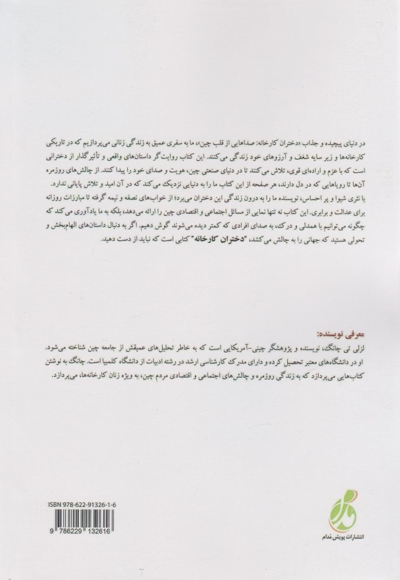 در دنیای پیچیده و جذاب «دختران کارخانه: صداهایی از قلب چین»، ما به سفری عمیق به زندگی زنانی می‌پردازیم که در تاریکی
کارخانه‌ها و زیر سایه شغف و آرزوهای خود زندگی می‌کنند. این کتاب روایت‌گر داستان‌های واقعی و تأثیرگذار از دخترانی
است که با عزم و اراده‌ای قوی، تلاش می‌کنند تا در دنیای صنعتی چین، هویت و صدای خود را پیدا کنند. از چالش‌های روزمره
آن‌ها تا رویاهایی که در دل دارند، هر صفحه از این کتاب ما را به دنیایی نزدیک می‌کند که در آن امید و تلاش پایانی ندارد.
با نثری شیوا و پر احساس، نویسنده ما را به درون زندگی این دختران می‌برد؛ از خواب‌های نصفه و نیمه گرفته تا مبارزات روزانه
برای عدالت و برابری. این کتاب نه تنها نمایی از مسائل اجتماعی و اقتصادی چین را ارائه می‌دهد، بلکه به ما یادآوری می‌کند که
چگونه می‌توانیم با همدلی و درک، به صدای افرادی که کمتر دیده می‌شوند گوش دهیم. اگر به دنبال داستان‌های الهام‌بخش و
تحولی هستید که جهانی را به چالش می‌کشند، "دختران کارخانه" کتابی است که نباید از دست دهید.
معرفی نویسنده:
لزلی تی چانگ، نویسنده و پژوهشگر چینی-آمریکایی است که به خاطر تحلیل‌های عمیقش از جامعه چین شناخته می‌شود.
او در دانشگاه‌های معتبر تحصیل کرده و دارای مدرک کارشناسی ارشد در رشته ادبیات از دانشگاه کلمبیا است. چانگ به نوشتن
کتاب‌هایی می‌پردازد که به زندگی روزمره و چالش‌های اجتماعی و اقتصادی مردم چین، به ویژه زنان کارخانه‌ها، می‌پردازد.
ISBN: 978-622-91326-1-6
9 786229 132616
انتشارات پویش مُدام